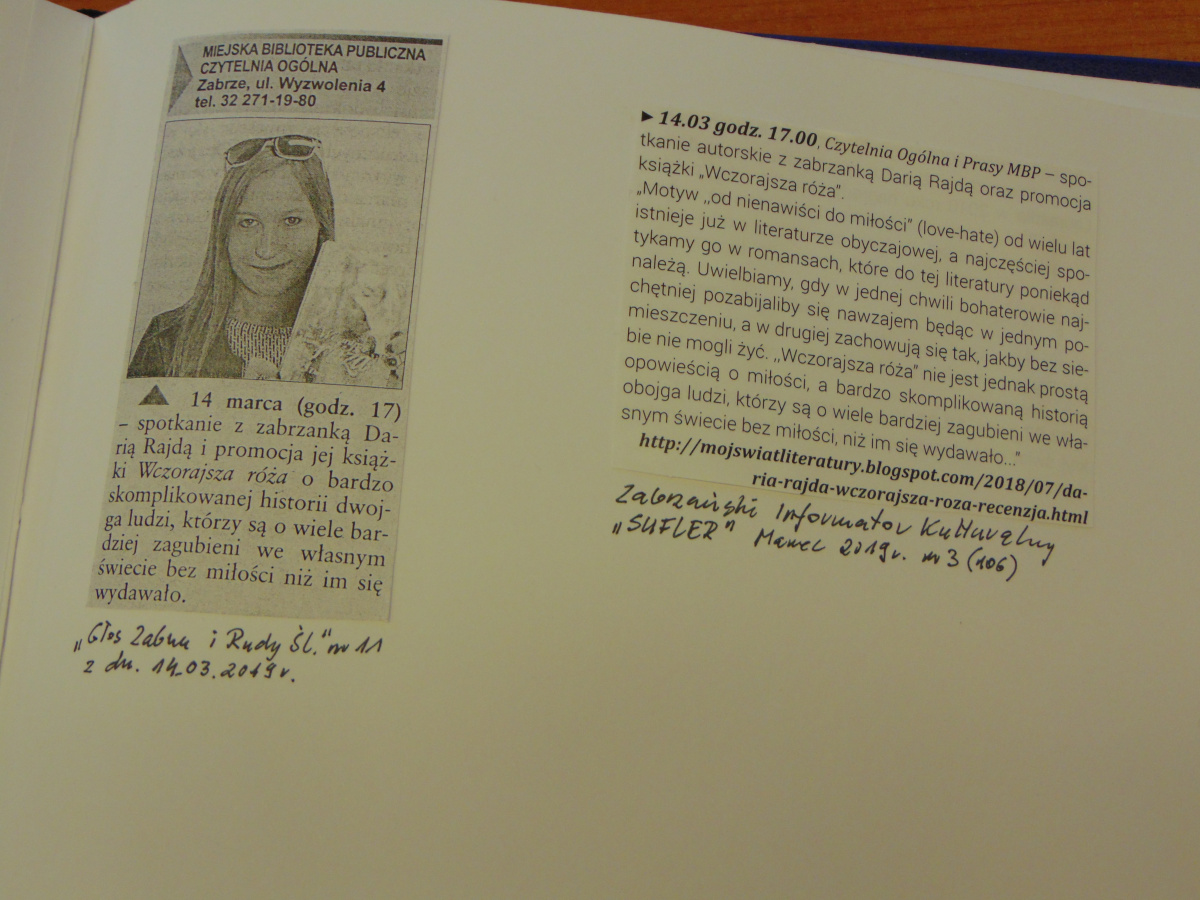 MIEJSKA BIBLIOTEKA PUBLICZNA
CZYTELNIA OGÓLNA
Zabrze, ul. Wyzwolenia 4
tel. 32 271-19-80
14 marca (godz. 17)
– spotkanie z zabrzanką Da-
rią Rajdą i promocja jej książ-
ki Wczorajsza róża o bardzo
skomplikowanej historii dwoj-
ga ludzi, którzy są o wiele bar-
dziej zagubieni we własnym
świecie bez miłości niż im się
wydawało.
„Głos Zabrza i Rudy Śl." nr 11
z dn. 14.03.2019r.
►14.03 godz. 17.00, Czytelnia Ogólna i Prasy MBP – spo-
tkanie autorskie z zabrzanką Darią Rajdą oraz promocja
książki „Wczorajsza róża".
„Motyw „od nienawiści do miłości" (love-hate) od wielu lat
istnieje już w literaturze obyczajowej, a najczęściej spo-
tykamy go w romansach, które do tej literatury poniekąd
należą. Uwielbiamy, gdy w jednej chwili bohaterowie naj-
chętniej pozabijaliby się nawzajem będąc w jednym po-
mieszczeniu, a w drugiej zachowują się tak, jakby bez sie-
bie nie mogli żyć. „Wczorajsza róża" nie jest jednak prostą
opowieścią o miłości, a bardzo skomplikowaną historią
obojga ludzi, którzy są o wiele bardziej zagubieni we wła-
snym świecie bez miłości, niż im się wydawało..."
http://mojswiatliteratury.blogspot.com/2018/07/da-
ria-rajda-wczorajsza-roza-recenzja.html
Zabrzański Informator Kulturalny
„SUFLER" Marzec 2019r. nr 3 (106)